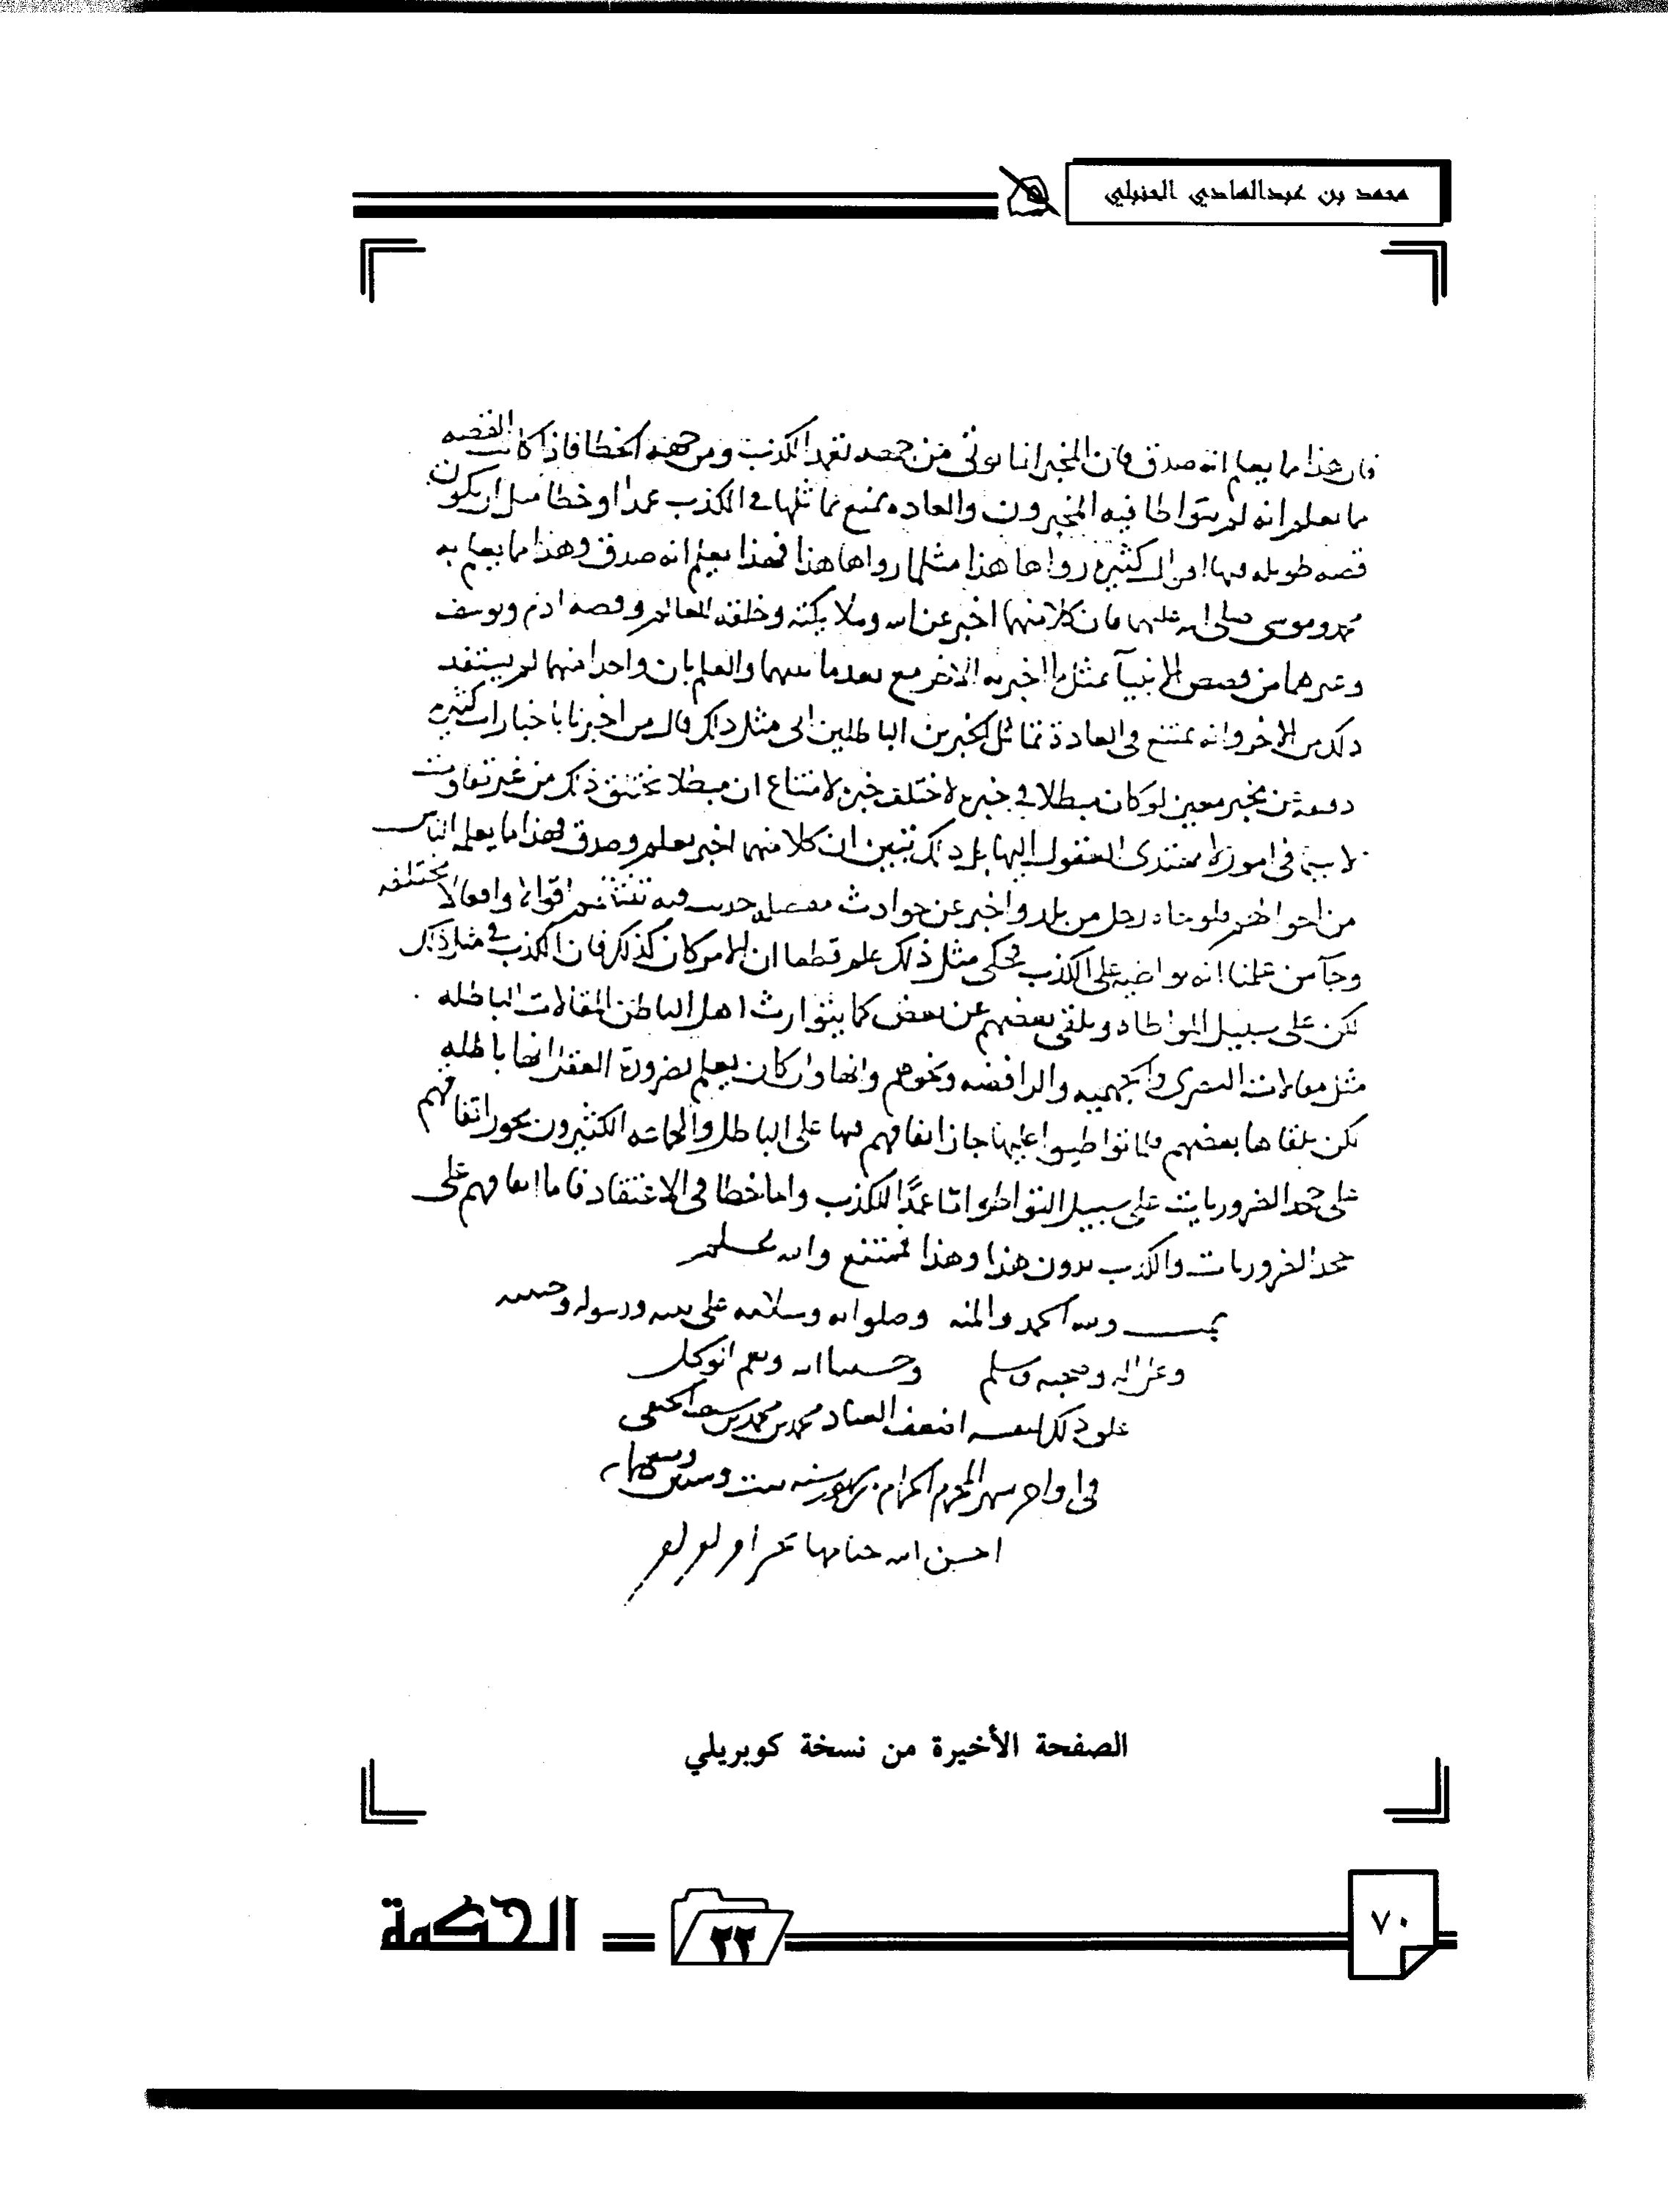 محمد بن عبدالهادي الحنبلي
فان هذا مما يعلم انه صدق فان المخبر انما يوتى من جهه تعمد الكذب ومن جهه الخطا فاذا كانت القصه
مما يعلم انه لم يتواطا فيه المخبرون والعاده تمنع تماثلها في الكذب عمدا او خطا مثل ان يكون
قصه طويله فيها اقوال كثيره رواها هذا مثلما رواها هذا فهذا يعلم انه صدق وهذا مما يعلم به
محمد وموسى صلى الله عليهما فان كلا منهما اخبر عن الله وملائكته وخلقه للعالم وقصه ادم ويوسف
وغيرهما من قصص الانبيآ بمثل ما اخبر به الاخر مع بعد ما بينهما والعلم بان واحدا منهما لم يستفد
ذلك من الاخر وانه يمتنع في العادة تماثل الخبرين الباطلين الى مثل ذلك فان من اخبرنا باخبارات كثيره
دقيقة عن مخبر معين لو كان مبطلا في خبره لاختلف خبره لامتناع ان مبطلا يختلق ذلك من غير تفاوت
لا سيما في امور لا تهتدي العقول اليها بل ذلك تبين ان كلا منهما اخبر بعلم وصدق فهذا مما يعلمه الناس
من احوالهم فلو جاء رجل من بلد واخبر عن حوادث مفصله حدثت فيه تنتظم اقوالا وافعالا مختلفه
وجآ من علمنا انه لم يواطيه على الكذب فحكى مثل ذلك علم قطعا ان الامر كان كذلك فان الكذب في مثل ذلك
لكن على سبيل المواطاه ويلقي بعضهم عن بعض كما يتوارث اهل الباطن المقالات الباطله
مثل مقالات النصرى والجهميه والرافضه ونحوهم وانها وان كان يعلم بضرورة العقل انها باطله
لكن تلقاها بعضهم فلما تواطيوا عليها جاز اتفاقهم فيها على الباطل والجماعه الكثيرون يجوز اتفاقهم
على جحد الضروريات على سبيل التواطو اما عمدًا للكذب واما خطا في الاعتقاد فاما اتفاقهم على
جحد الضروريات والكذب بدون هذا وهذا فممتنع والله اعلم
تمت ولله الحمد والمنه وصلواته وسلامه على نبيه ورسوله وحبيبه
وعلى اله وصحبه وسلم وحسبنا الله ونعم الوكيل
علق ذلك لنفسه اضعف العباد محمد بن محمد بن الحنفي
في اواخر شهر المحرم الحرام سنه ست وستين
احسن الله ختامها بخير
الصفحة الأخيرة من نسخة كوبريلي
٧٠
٢٢
الحكمة